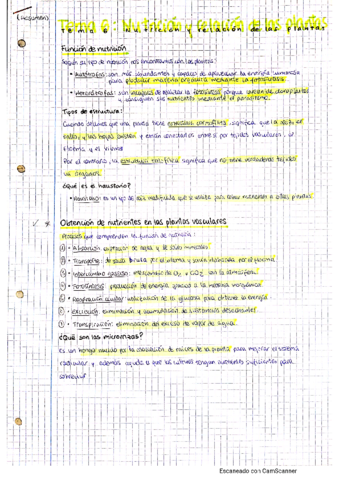 (Resumen)
Tema 6: Nutrición y relación de las plantas
Función de nutrición
Según su tipo de nutrición nos encontramos con las plantas:
• Autótrofas: son más abundantes y capaces de aprovechar la energía luminosa
para producir materia orgánica mediante la fotosíntesis.
• Heterótrofas: son incapaces de realizar la fotosíntesis porque carecen de cloroplastos
y consiguen sus nutrientes mediante el parasitismo.
Tipos de estructura:
Cuando decimos que una planta tiene estructura cormofítica significa que la raíz, el
tallo, y las hojas existen y están conectados entre sí por tejidos vasculares, el
xilema y el floema
Por el contrario, la estructura talofítica significa que no tiene verdaderos tejidos
vasculares.
¿Qué es el haustorio?
• Haustorio: es un tipo de raíz modificada que se utiliza para robar nutrientes a otras plantas.
Obtención de nutrientes en las plantas vasculares
Procesos que comprenden la función de nutrición:
① • Absorción: captación de agua y de sales minerales
② • Transporte: de savia bruta por el xilema y savia elaborada por el floema
③ • Intercambio gaseoso: intercambio de O₂ y CO₂ con la atmósfera.
④ • Fotosíntesis: producción de energía gracias a la materia inorgánica.
⑤ • Respiración celular: utilización de la glucosa para obtener la energía.
⑥ • Excreción: eliminación y acumulación de sustancias desechables
⑦ • Transpiración: eliminación del exceso de vapor de agua.
¿Qué son las micorrizas?
Es un hongo nacido por la asociación de raíces de la planta para mejorar el sistema
radicular y además ayuda a que las raíces tengan nutrientes suficientes para
sobrevivir
Escaneado con CamScanner